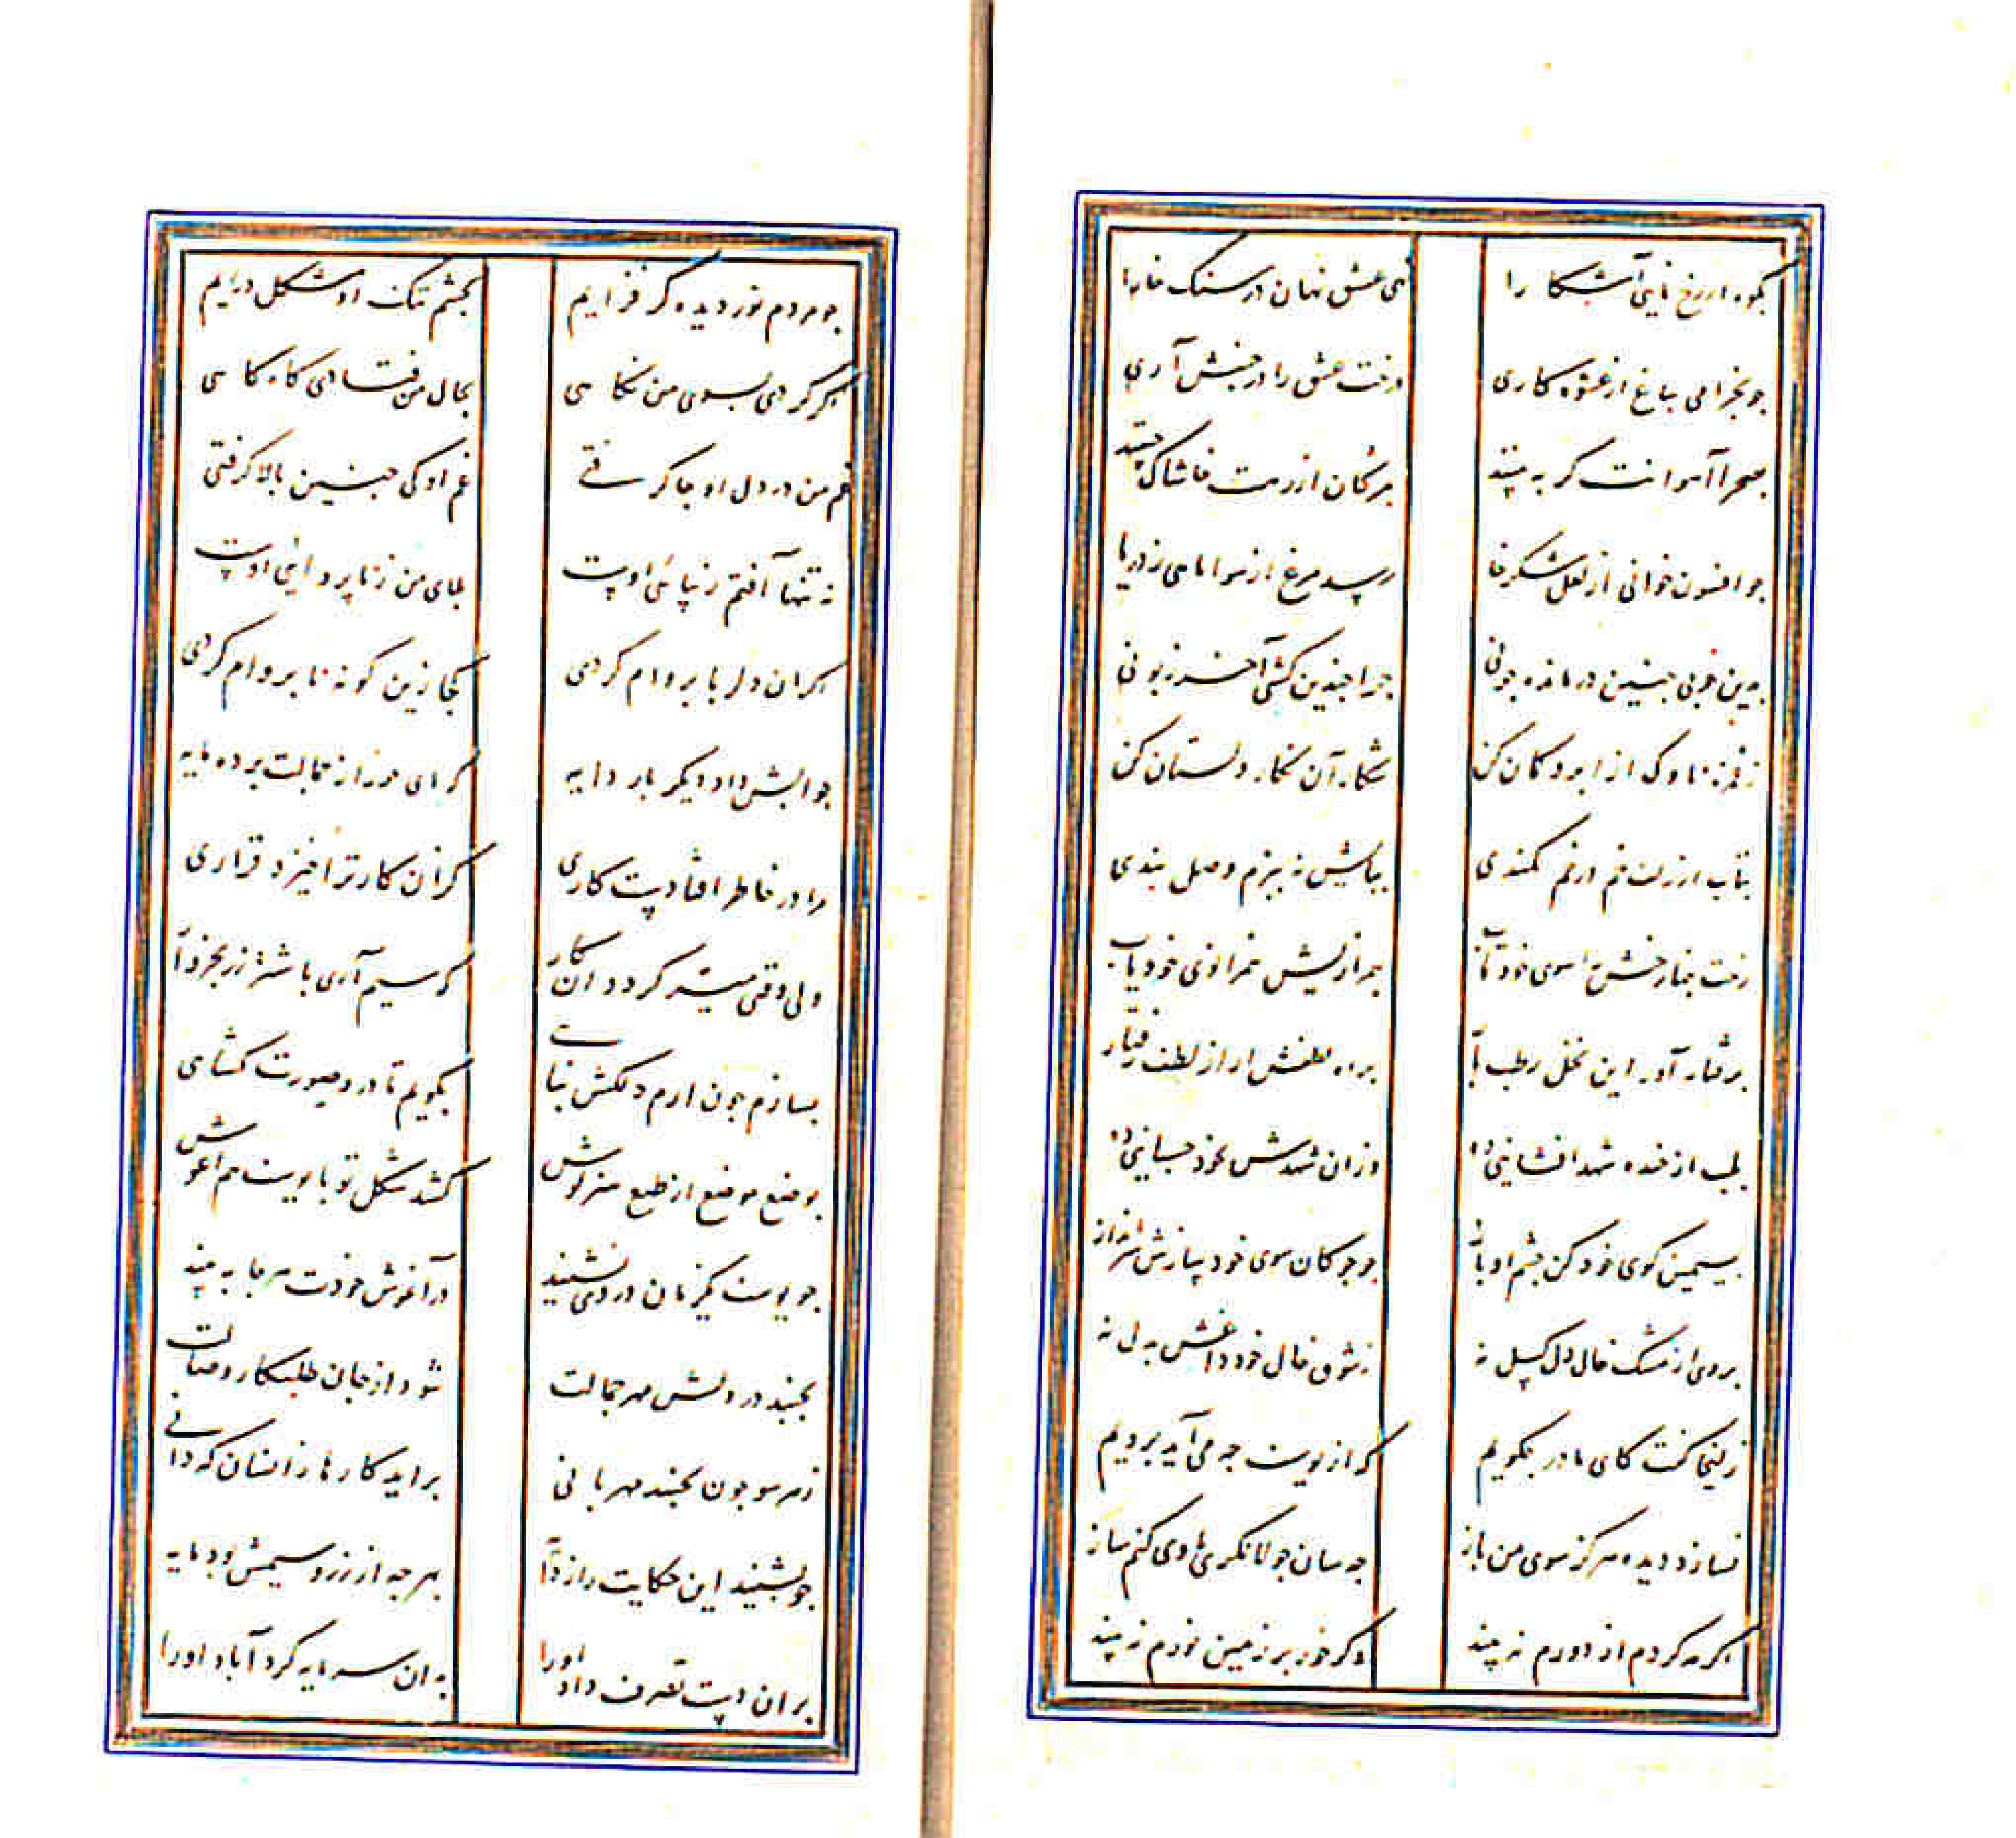 بکوه ار رخ نمایی آشکارا
نهی عشق نهان در سنگ خارا
جو بخرامی بباغ از عشوه کاری
درخت عشق را در جنبش آری
بصحرا آهوانت کر به بینند
بمژکان از رهت خاشاک چینند
جو افسون خوانی از لعل شکرخا
رسد مرغ از هوا ماهی ز دریا
بدین خوبی جنین درمانده جونی
جرا جندین کشی آخر زبونی
ز غمزه ناوک از ابرو کمان کن
شکار آن نکار دلستان کن
بتاب از زلف خم در خم کمندی
بپایش نه ببزم وصل بندی
رخت بنما رخش را سوی خود تاب
براه لطفش آر از لطف رفتار
برفتار آور این نخل رطب بار
بلب از خنده شهد افشانیی ده
وزان شهدش بخود جسبانیی ده
بسیمین کوی خود کن جشم او باز
جو جوکان سوی خود سازش سرافراز
بروی از مشک خال دل کسل نه
ز شوق خال خود داغش بدل نه
زلیخا کفت کای مادر بکویم
که از یوسف جه می آید برویم
نسازد دیده هرکز سوی من باز
جه سان جولانکری با وی کنم ساز
اکر مه کردم از دورم نه بیند
وکر خور بر زمین نورم نه بیند
جو مردم نور دیده کر فزایم
بجشم تنک او مشکل درایم
اکر کردی بسوی من نکاهی
بحال من فتادی کاه کاهی
غم من در دل او جا کرفتی
غم او کی جنین بالا کرفتی
نه تنها آفتم زیبایی اوست
بلای من ز ناپروایی اوست
اکر آن دلربا پروام کردی
کجا زین کونه ناپروام کردی
جوابش داد دیکر بار دایه
که ای حور از جمالت برده مایه
مرا در خاطر افتادست کاری
کزان کار ترا خیزد قراری
ولی وقتی میسر کردد ان کار
که سیم آری باشتر زر بخروار
بسازم جون ارم دلکش بنایی
بکویم تا درو صورت کشایی
بموضع موضع از طبع هنرکوش
کشد شکل تو با یوسف هم آغوش
جو یوسف یکزمان در وی نشیند
در آغوش خودت هر جا به بیند
بجنبد در دلش مهر جمالت
شود از جان طلبکار وصالت
ز هر سو جون بجنبد مهربانی
براید کارها زانسان که دانی
جو بشنید این حکایت را ز دایه
بهر جه از زر و سیمش بود مایه
بران دست تصرف داد او را
بدان سرمایه کرد آباد او را